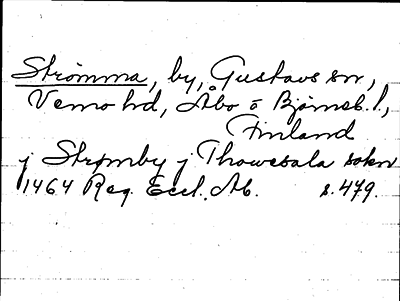 Strömma, by, Gustavs sn,
Vemo hd, Åbo o Björneb. l.,
Finland
j Strömby j Thowesala sokn
1464 Reg. Eccl. Ab. s. 479.